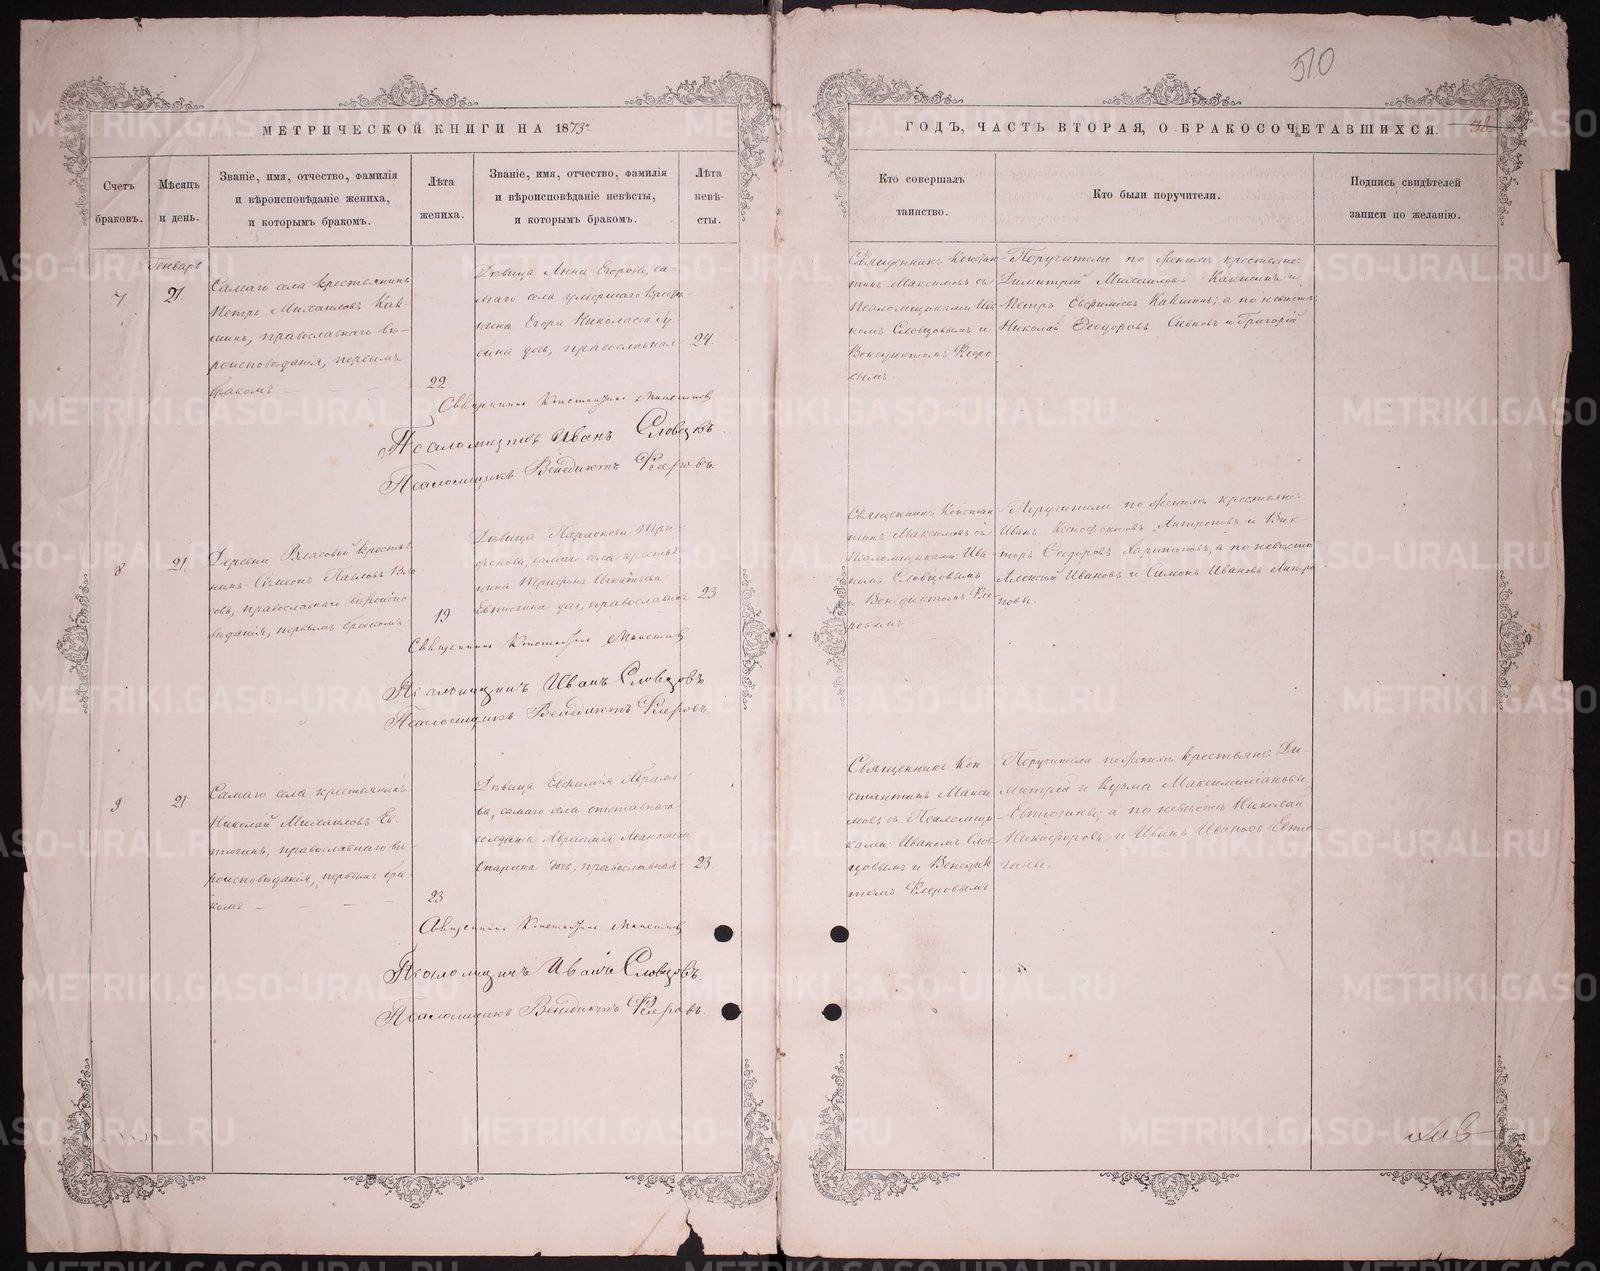 510
МЕТРИЧЕСКОЙ КНИГИ НА 1873
ГОДЪ, ЧАСТЬ ВТОРАЯ, О БРАКОСОЧЕТАВШИХСЯ.
38
Счетъ
браковъ.
Мѣсяцъ
и день.
Званіе, имя, отчество, фамилія
и вѣроисповѣданіе жениха,
и которымъ бракомъ.
Лѣта
жениха.
Званіе, имя, отчество, фамилія
и вѣроисповѣданіе невѣсты,
и которымъ бракомъ.
Лѣта
невѣ-
сты.
Кто совершалъ
таинство.
Кто были поручители.
Подпись свидѣтелей
записи по желанію.
Генварь
7
21
Самаго села крестьянинъ
Петръ Михаиловъ
православнаго вѣ-
роисповѣданія, первымъ
бракомъ
22
Дѣвица Анна Егорова, са-
маго села умершаго кресть-
янина Егора Николаева
дочь, православная
24.
Священникъ Констан-
тинъ Максимовъ съ
Псаломщиками Ива-
номъ Словцовымъ и
Венедиктомъ Флеро-
вымъ.
Поручители по женихѣ крестьяне:
Димитрій Михаиловъ и
Петръ Евфимовъ а по невѣстѣ
Николай Феодоровъ Сивковъ и Григорій
Священникъ Константинъ Максимовъ
Псаломщикъ Иванъ Словцовъ
Псаломщикъ Венедиктъ Флеровъ.
8
21
Деревни Власовой крестья-
нинъ Симеонъ Павловъ Вла
совъ, православнаго вѣроиспо-
вѣданія, первымъ бракомъ
19
Дѣвица Параскева Три-
фонова, самаго села крестья-
нина Трифона Игнатьева
Евтюгина дочь, православная
23
Священникъ Констан-
тинъ Максимовъ съ
Псаломщиками Ива-
номъ Словцовымъ
и Венедиктомъ Фле-
ровымъ
Поручители по женихѣ крестьяне:
Иванъ Ксенофонтовъ Антроповъ и Вик-
торъ Феодоровъ Харитоновъ, а по невѣстѣ
Алексѣй Ивановъ и Симонъ Ивановъ Антро
повы.
Священникъ Константинъ Максимовъ
Псаломщикъ Иванъ Словцовъ
Псаломщикъ Венедиктъ Флеровъ.
9
21
Самаго села крестьянинъ
Николай Михаиловъ Ев-
тюгинъ, православнаго вѣ-
роисповѣданія, первымъ бра-
комъ
23
Дѣвица Евфимія Абрамо-
ва, самаго села отставнаго
солдата
дочь, православная
23
Священникъ Кон-
стантинъ Макси-
мовъ съ Псаломщи-
ками: Иваномъ Слов-
цовымъ и Венедик-
томъ Флеровымъ
Поручители по женихѣ крестьяне: Ди-
митрій и Козма Максимиліановы
Евтюгины; а по невѣстѣ Николай
Никифоровъ и Иванъ Ивановъ Евтю-
гины.
Священникъ Константинъ Максимовъ
Псаломщикъ Иванъ Словцовъ.
Псаломщикъ Венедиктъ Флеровъ.
METRIKI.GASO-URAL.RU